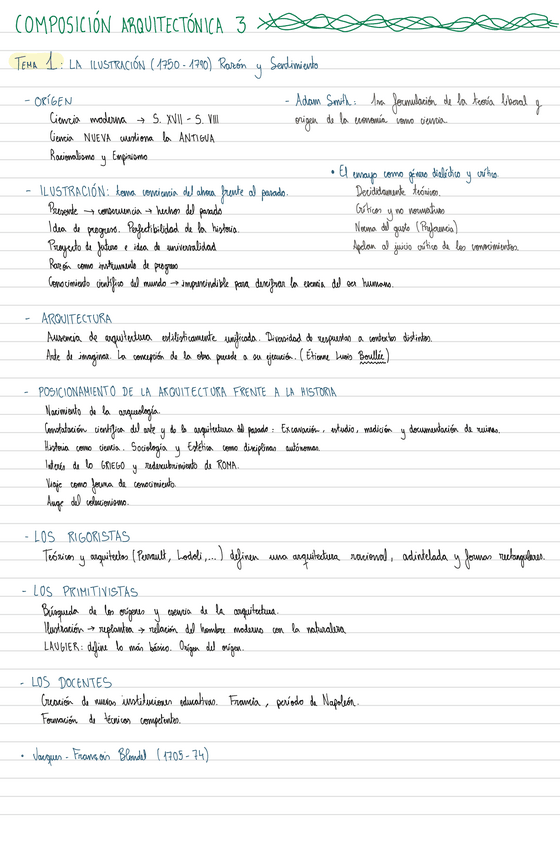 COMPOSICIÓN ARQUITECTÓNICA 3
TEMA 1: LA ILUSTRACIÓN (1750 - 1790) Razón y Sentimiento
- ORÍGEN
Ciencia moderna → S. XVII - S. VIII
Ciencia NUEVA cuestiona la ANTIGUA
Racionalismo y Empirismo
- Adam Smith: 1ra formulación de la teoría liberal y
origen de la economía como ciencia.
• El ensayo como género dialéctico y crítico.
Decididamente teóricos.
Críticos y no normativos
Norma del gusto (Preferencia)
Apelan al juicio crítico de los conocimientos.
- ILUSTRACIÓN: toma conciencia del ahora frente al pasado.
Presente → consecuencia → hechos del pasado
Idea de progreso. Perfectibilidad de la historia.
Proyecto de futuro e idea de universalidad
Razón como instrumento de progreso
Conocimiento científico del mundo → imprescindible para descifrar la esencia del ser humano.
- ARQUITECTURA
Ausencia de arquitectura estilísticamente unificada. Diversidad de respuestas a contextos distintos.
Arte de imaginar. La concepción de la obra precede a su ejecución. (Étienne Louis Boullée)
- POSICIONAMIENTO DE LA ARQUITECTURA FRENTE A LA HISTORIA
Nacimiento de la arqueología.
Constatación científica del arte y de la arquitectura del pasado: Excavación, estudio, medición y documentación de ruinas.
Historia como ciencia. Sociología y Estética como disciplinas autónomas.
Interés de lo GRIEGO y redescubrimiento de ROMA.
Viaje como forma de conocimiento.
Auge del colecionismo.
- LOS RIGORISTAS
Teóricos y arquitectos (Perrault, Lodoli,...) definen una arquitectura racional, adintelada y formas rectangulares.
- LOS PRIMITIVISTAS
Búsqueda de los orígenes y esencia de la arquitectura.
Ilustración → replantea → relación del hombre moderno con la naturaleza
LAUGIER: define lo más básico. Origen del origen.
- LOS DOCENTES
Creación de nuevas instituciones educativas. Francia, período de Napoleón.
Formación de técnicos competentes.
• Jacques - François Blondel (1705 - 74)